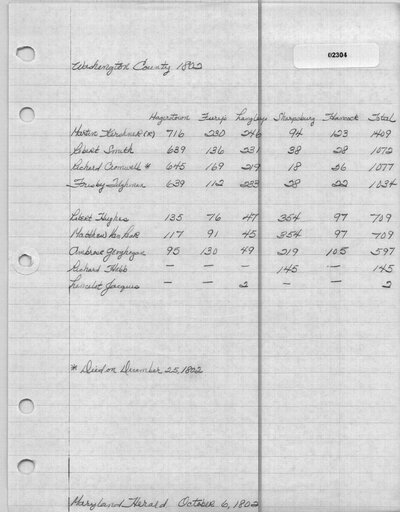 02304
Washington County 1802
Hagerstown Funk's Langley's Sharpsburg Hancock Total
Martin Kershner (R) 716 230 246 94 123 1409
Robert Smith 639 136 231 38 28 1072
Richard Cromwell * 645 169 219 18 26 1077
Frisby Tilghman 639 112 233 28 22 1034
Robert Hughes 135 76 47 354 97 709
Matthew Van Lear 117 91 45 354 97 709
Ambrose Geoghegan 95 130 49 219 105 597
Richard Webb — — — 145 — 145
Lancelot Jacques — — 2 — — 2
* Died on December 25, 1802
Maryland Herald October 6, 1802